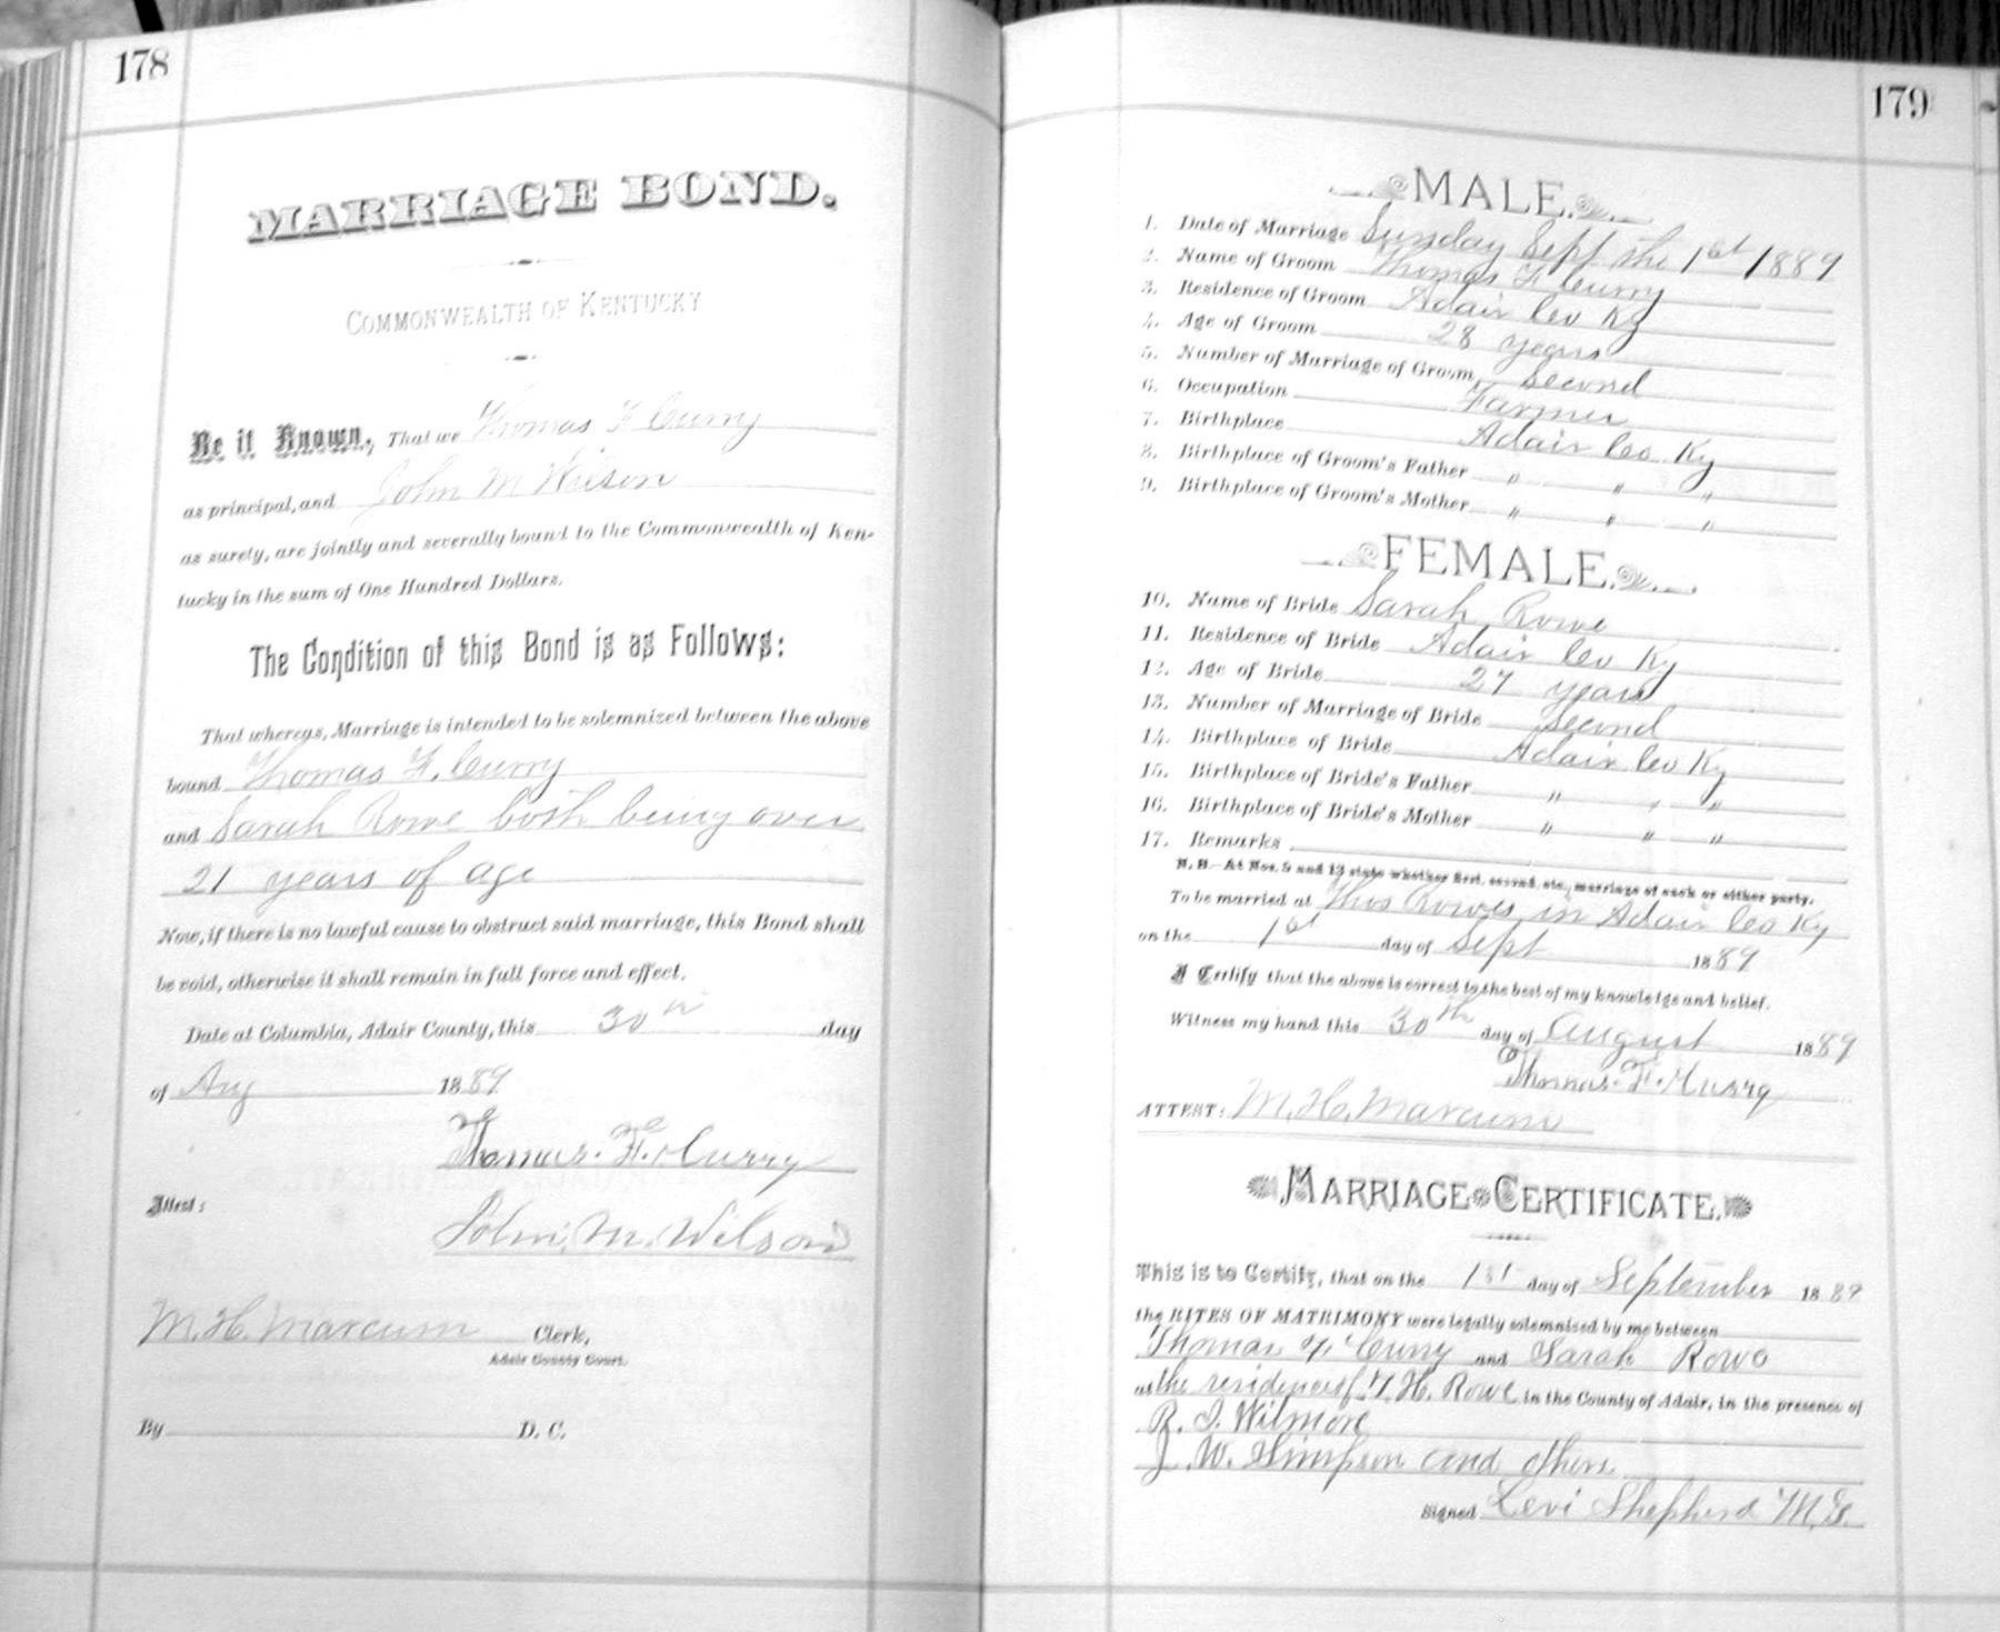 178
MARRIAGE BOND.
COMMONWEALTH OF KENTUCKY
Be it Known, That we Thomas F Curry
as principal, and John M Wilson
as surety, are jointly and severally bound to the Commonwealth of Ken-
tucky in the sum of One Hundred Dollars.
The Condition of this Bond is as Follows:
That whereas, Marriage is intended to be solemnized between the above
bound Thomas F. Curry
and Sarah Rowe both being over
21 years of age
Now, if there is no lawful cause to obstruct said marriage, this Bond shall
be void, otherwise it shall remain in full force and effect.
Date at Columbia, Adair County, this 30th day
of Aug 1889
Thomas. F. Curry
Attest:
John. M. Wilson
M. H. Marcum Clerk,
Adair County Court.
By D. C.
179
MALE.
1. Date of Marriage Sunday Sept the 1st 1889
2. Name of Groom Thomas F Curry
3. Residence of Groom Adair Co Ky
4. Age of Groom 28 years
5. Number of Marriage of Groom Second
6. Occupation Farmer
7. Birthplace Adair Co Ky
8. Birthplace of Groom's Father " " "
9. Birthplace of Groom's Mother " " "
FEMALE.
10. Name of Bride Sarah Rowe
11. Residence of Bride Adair Co Ky
12. Age of Bride 27 years
13. Number of Marriage of Bride Second
14. Birthplace of Bride Adair Co Ky
15. Birthplace of Bride's Father " " "
16. Birthplace of Bride's Mother " " "
17. Remarks
N. B.—At Nos. 5 and 13 state whether first, second, etc., marriage of each or either party.
To be married at Thos Rowes in Adair Co Ky
on the 1st day of Sept 1889
I Certify that the above is correct to the best of my knowledge and belief.
Witness my hand this 30th day of August 1889
Thomas. F. Curry
ATTEST: M. H. Marcum
MARRIAGE CERTIFICATE.
This is to Certify, that on the 1st day of September 1889
the RITES OF MATRIMONY were legally solemnized by me between
Thomas F Curry and Sarah Rowe
at the residence of T. H. Rowe in the County of Adair, in the presence of
R. J. Wilmore
J. W. Simpson and others
Signed Levi Shepherd M. G.